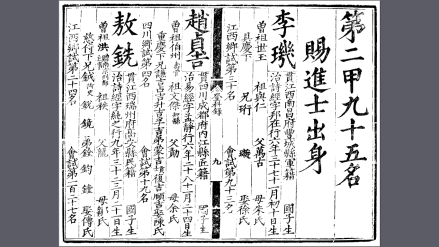 第二甲九十五名
賜進士出身
李璣
貫江西南昌府豐城縣軍籍 國子生
治詩經字邦在行六年三十七月初十日生
曾祖世王 祖與仁 父萬古 母朱氏
具慶下 兄珩 娶徐氏
江西鄉試第三十名 會試第九十三名
登科錄 九
趙貞吉
貫四川成都府內江縣匠籍 國子生
治易經字孟靜行八年二十八十一月二十四日生
曾祖伯州 祖文傑 父勳 母余氏
重慶下 娶陳氏
四川鄉試第四名 會試第十九名
敖銑
貫江西瑞州府高安縣民籍 國子生
治詩經字純之行九年三十三月二十一日生
曾祖洪 祖秩 父龍 母鄒氏
慈侍下 兄鉞 銳 鏡 弟銓 鈞 鍾 娶傅氏
江西鄉試第二十四名 會試第一百二十七名